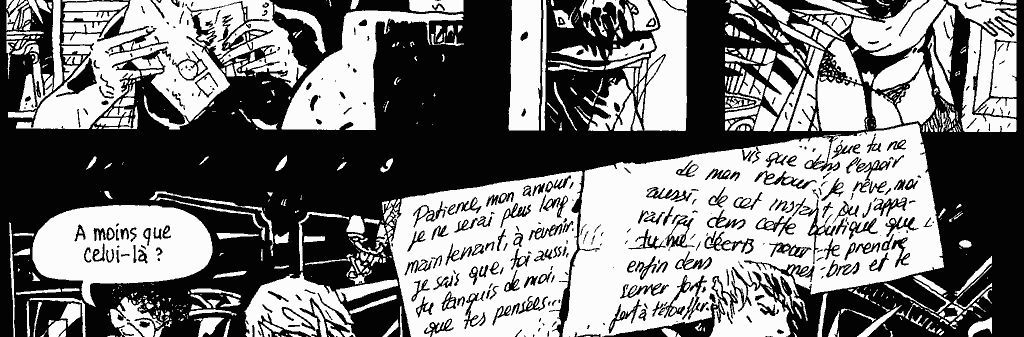 A moins que
celui-là ?
Patience, mon amour,
je ne serai plus long
maintenant, à revenir.
je sais que, toi aussi,
tu languis de moi...
que tes pensées...
vis que dans l'espoir
de mon retour. Je rêve, moi
aussi, de cet instant où j'appa-
raîtrai dans cette boutique que
tu me décris pour te prendre
enfin dans mes bras et te
serrer fort,
fort à t'étouffer.
que tu ne